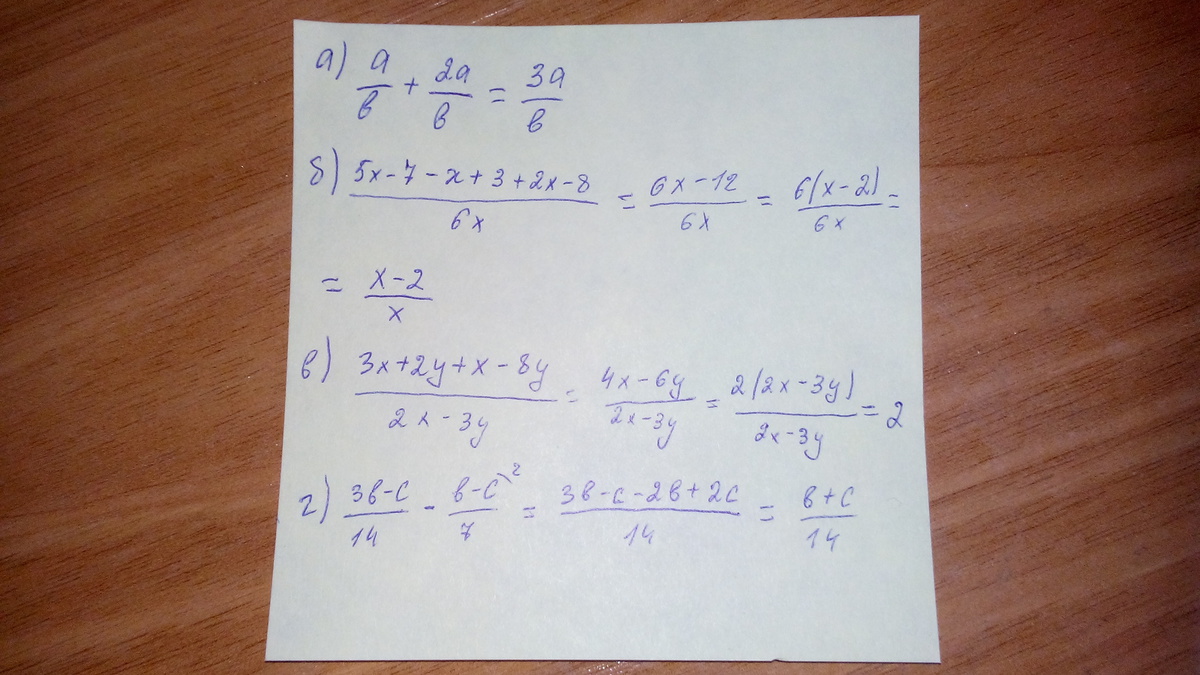 а) a/b + 2a/b = 3a/b
б) (5x-7-x+3+2x-8)/6x = (6x-12)/6x = 6(x-2)/6x =
= (x-2)/x
в) (3x+2y+x-8y)/(2x-3y) = (4x-6y)/(2x-3y) = 2(2x-3y)/(2x-3y) = 2
г) (3b-c)/14 - (b-c)\2/7 = (3b-c-2b+2c)/14 = (b+c)/14